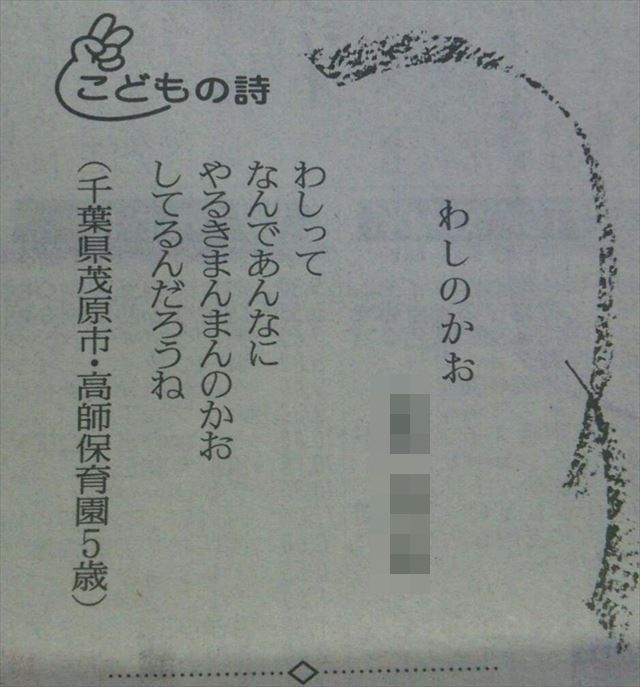 こどもの詩
わしのかお
わしって
なんであんなに
やるきまんまんのかお
してるんだろうね
（千葉県茂原市・高師保育園5歳）